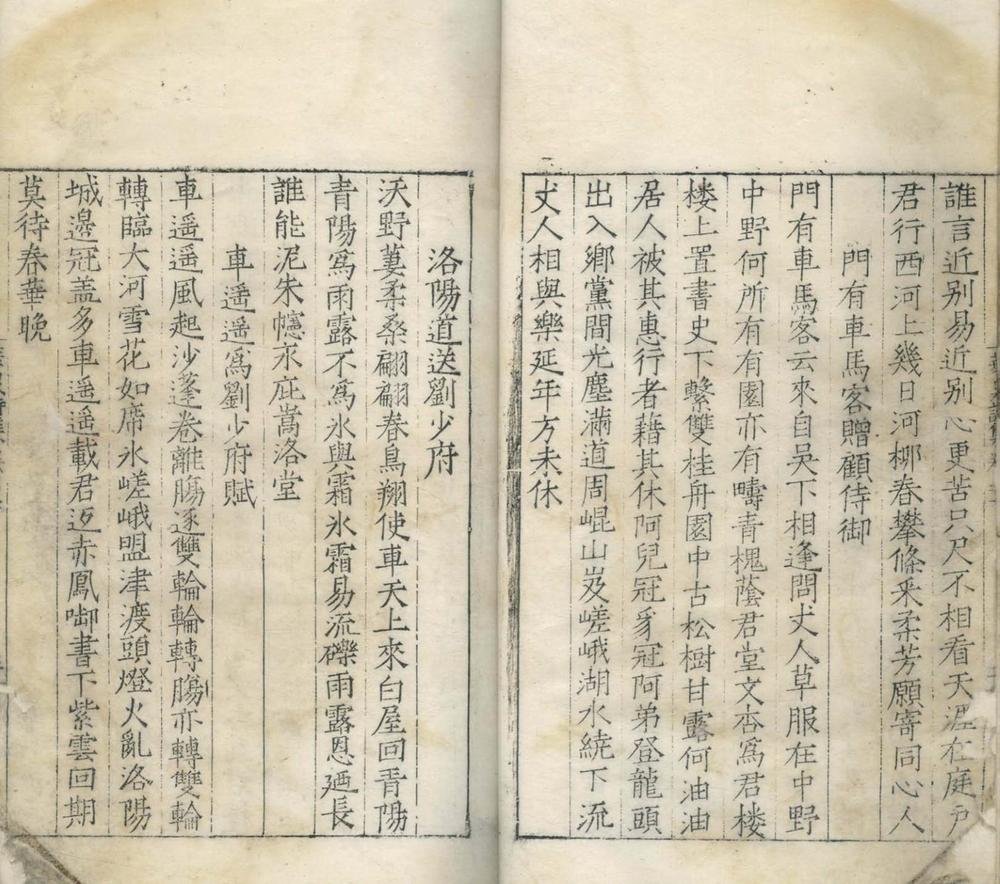 誰言近别易近别心更苦只尺不相看天涯在庭戶
君行西河上幾日河栁春攀條采柔芳願寄同心人
門有車馬客贈顧侍御
門有車馬客云來自吳下相逢問丈人草服在中野
中野何所有有園亦有疇青槐蔭君堂文杏爲君楼
楼上置書史下繫雙桂舟園中古松樹甘露何油油
居人被其惠行者藉其休阿兒冠豸冠阿弟登龍頭
出入鄉黨間光塵滿道周崐山岌嵯峨湖水繞下流
丈人相與樂延年方未休
洛陽道送劉少府
沃野萋柔桑翩翩春鳥翔使車天上來白屋回青陽
青陽爲雨露不爲氷與霜氷霜易流礫雨露恩廼長
誰能泥朱幰永庇嵩洛堂
車遥遥爲劉少府賦
車遥遥風起沙蓬卷離膓逐雙輪輪轉膓亦轉雙輪
轉臨大河雪花如席氷嵯峨盟津渡頭燈火亂洛陽
城邉冠盖多車遥遥載君迈赤鳳啣書下紫雲回期
莫待春華晚